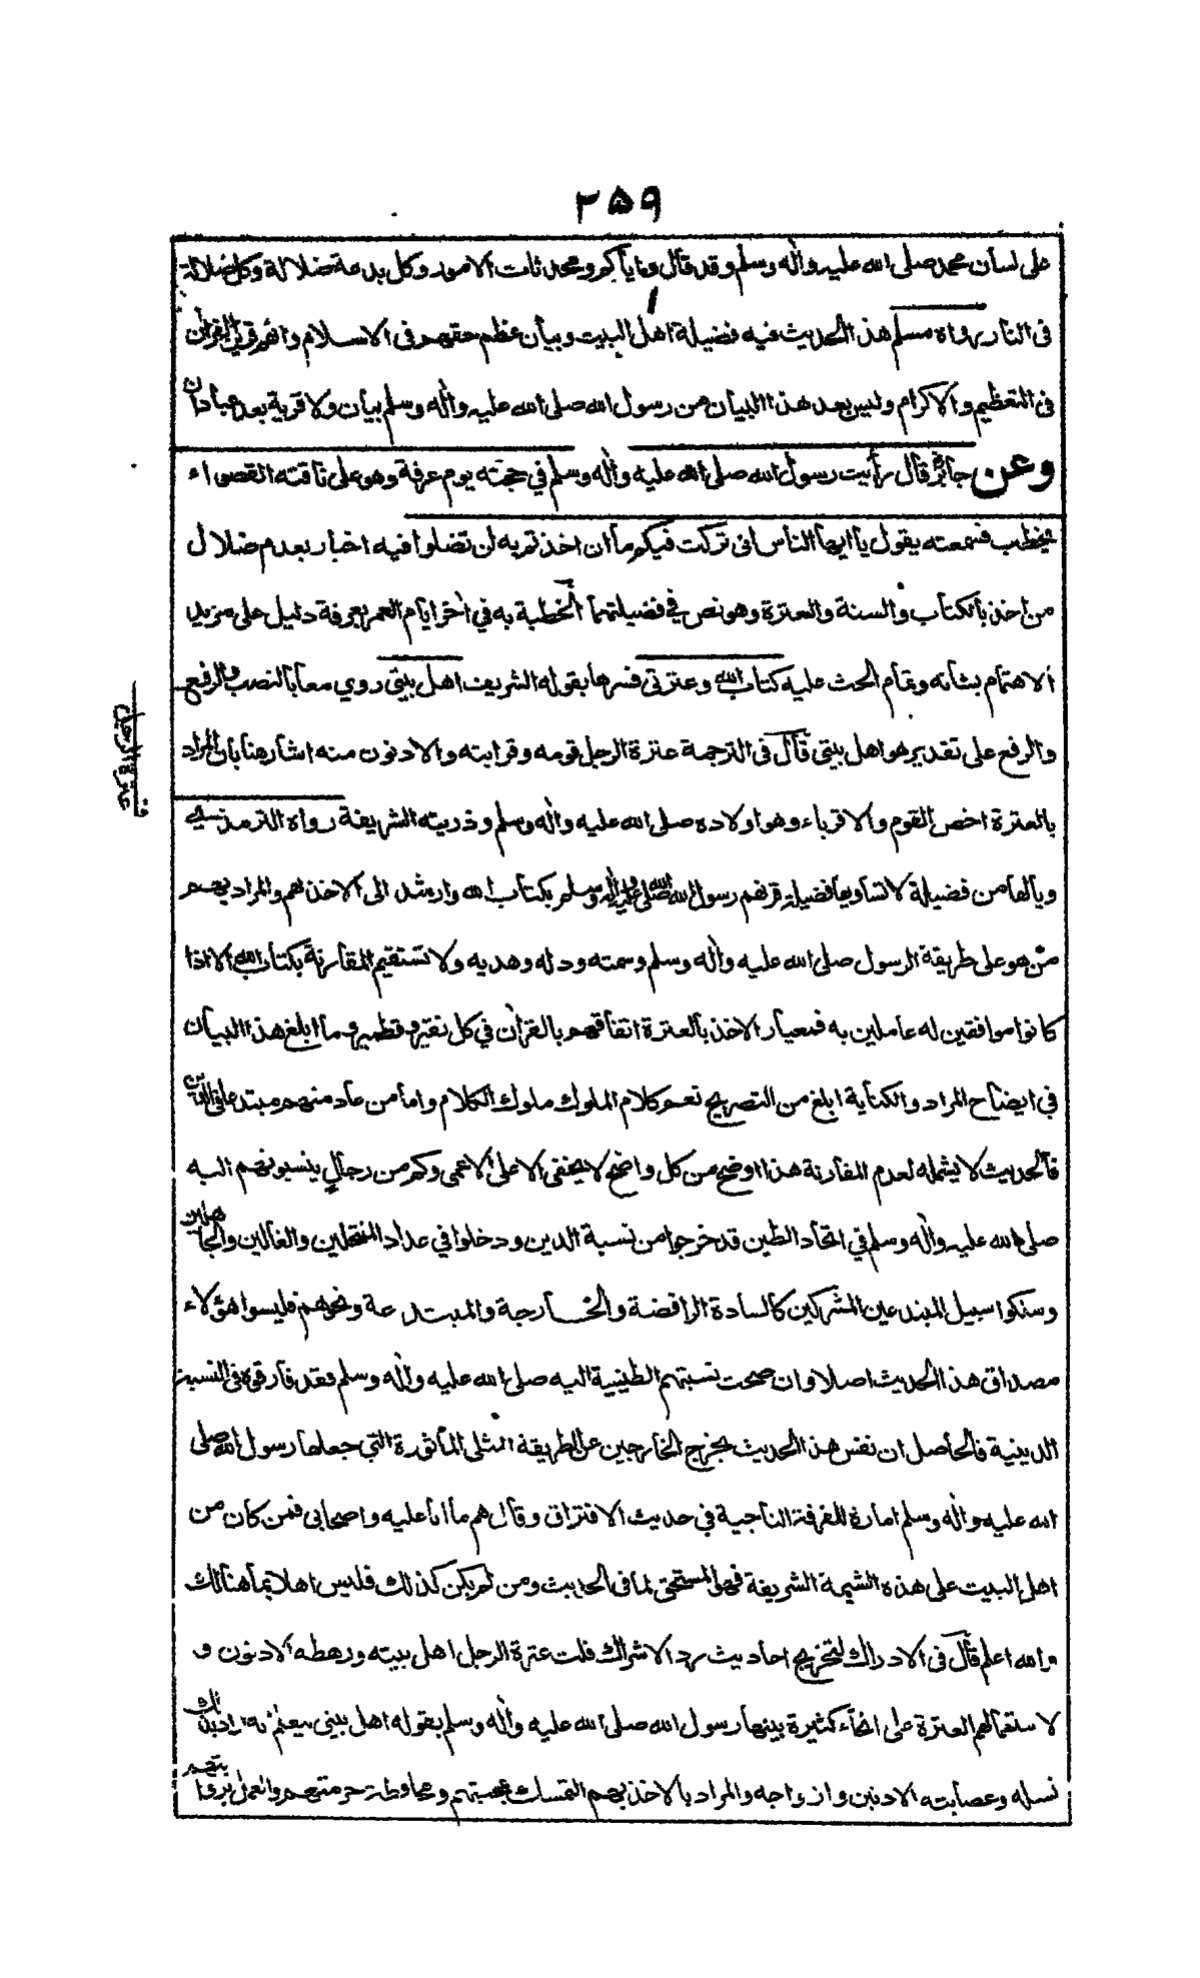 ۲۵۹
على لسان محمد صلى الله عليه واٰله وسلم وقد قال واياكم ومحدثات الامور وكل بدعة ضلالة وكل ضلالة
فى النار رواه مسلم هذا الحديث فيه فضيلة اهل البيت وبيان عظم حقهم فى الاسلام وانهم قرين القراٰن
فى التعظيم والاكرام وليس بعد هذا البيان من رسول الله صلى الله عليه واٰله وسلم بيان ولا قرية بعد عبادان
وعن جابر قال رأيت رسول الله صلى الله عليه واٰله وسلم في حجته يوم عرفة وهو على ناقته القصواء
يخطب فسمعته يقول يا ايها الناس انى تركت فيكم ما ان اخذتم به لن تضلوا فيه اخبار بعدم ضلال
من اخذ بالكتاب والسنة والعترة وهو نص في فضيلتهما الخطبة به في اٰخر ايام العمر بعرفة دليل على مزيد
الاهتمام بشانه وتمام الحث عليه كتاب الله وعترتى فسرها بقوله الشريف اهل بيتى روي معا بالنصب والرفع
والرفع على تقدير هو اهل بيتى قال فى الترجمة عترة الرجل قومه وقرابته والادنون منه اشار هنا بان المراد
عترة الرجل
بالعترة اخص القوم والاقرباء وهو اولاده صلى الله عليه واٰله وسلم وذريته الشريفة رواه الترمذي
ويالها من فضيلة لا تساويها فضيلة قرنهم رسول الله صلى الله عليه واٰله وسلم بكتاب الله وارشد الى الاخذ بهم والمراد بهم
من هو على طريقة الرسول صلى الله عليه واٰله وسلم وسمته ودله وهديه ولا تستقيم المقارنة بكتاب الله الا اذا
كانوا موافقين له عاملين به فمعيار الاخذ بالعترة اتفاقهم بالقراٰن في كل نقير وقطمير وما ابلغ هذا البيان
في ايضاح المراد والكناية ابلغ من التصريح نعم كلام الملوك ملوك الكلام واما من عاد منهم مبتدعا فى الدين
فالحديث لا يشمله لعدم المقارنة هذا اوضح من كل واضح لا يخفى الا على الاعمى وكم من رجال ينسبونهم اليه
صلى الله عليه واٰله وسلم في اتحاد الطين قد خرجوا من نسبة الدين ودخلوا في عداد المنتحلين والغالين والجاهلين
وسلكوا سبيل المبتدعين المشركين كالسادة الرافضة والخارجة والمبتدعة ونحوهم فليسوا هؤلاء
مصداق هذا الحديث اصلا وان صحت نسبتهم الطينية اليه صلى الله عليه واٰله وسلم فقد فارقوه فى النسبة
الدينية فالحاصل ان نفس هذا الحديث يخرج الخارجين عن الطريقة المثلى المأثورة التي جعلها رسول الله صلى
الله عليه واٰله وسلم امارة للفرقة الناجية في حديث الافتراق وقال هم ما انا عليه واصحابى فمن كان من
اهل البيت على هذه الشيمة الشريفة فهو المستحق لما فى الحديث ومن لم يكن كذلك فليس اهلا بما هنالك
والله اعلم قال فى الادراك لتخريج احاديث رد الاشراك قلت عترة الرجل اهل بيته ورهطه الادنون و
لاستعمالهم العترة على انحاء كثيرة بينها رسول الله صلى الله عليه واٰله وسلم بقوله اهل بيتى ليعلم انه اراد بذلك
نسله وعصابته الادنين وازواجه والمراد بالاخذ بهم التمسك بمحبتهم ومحافظة حرمتهم والعمل بروايتهم